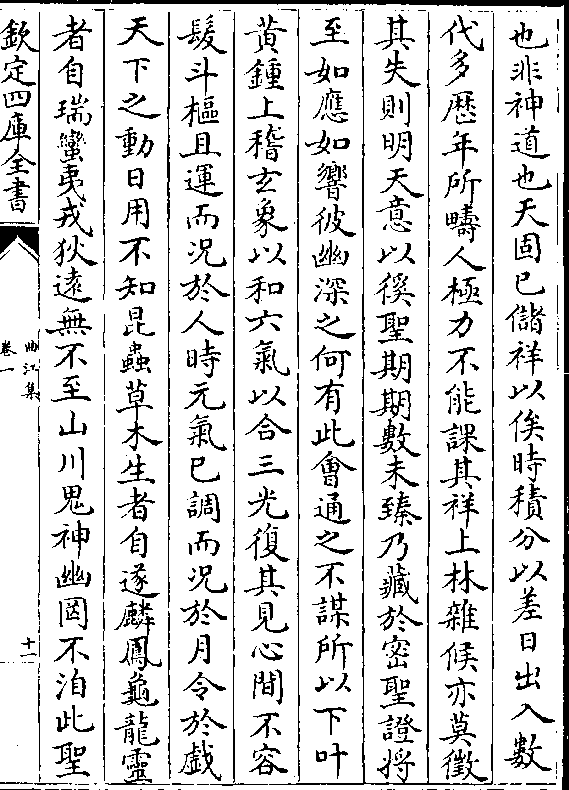 也非神道也天固已儲祥以俟時積分以差日出入數
代多歴年所疇人極力不能課其祥上林雜候亦莫徵
其失則明天意以徯聖期期數未臻乃藏於密聖證將
至如應如響彼幽深之何有此會通之不謀所以下叶
黄鍾上稽玄象以和六氣以合三光復其見心間不容
髮斗樞且運而况於人時元氣已調而况於月令於戯
天下之動日用不知昆蟲草木生者自遂麟鳳龜龍靈
者自瑞蠻夷戎狄遠無不至山川鬼神幽罔不洎此聖
欽定四庫全書
曲江集
卷一
十一